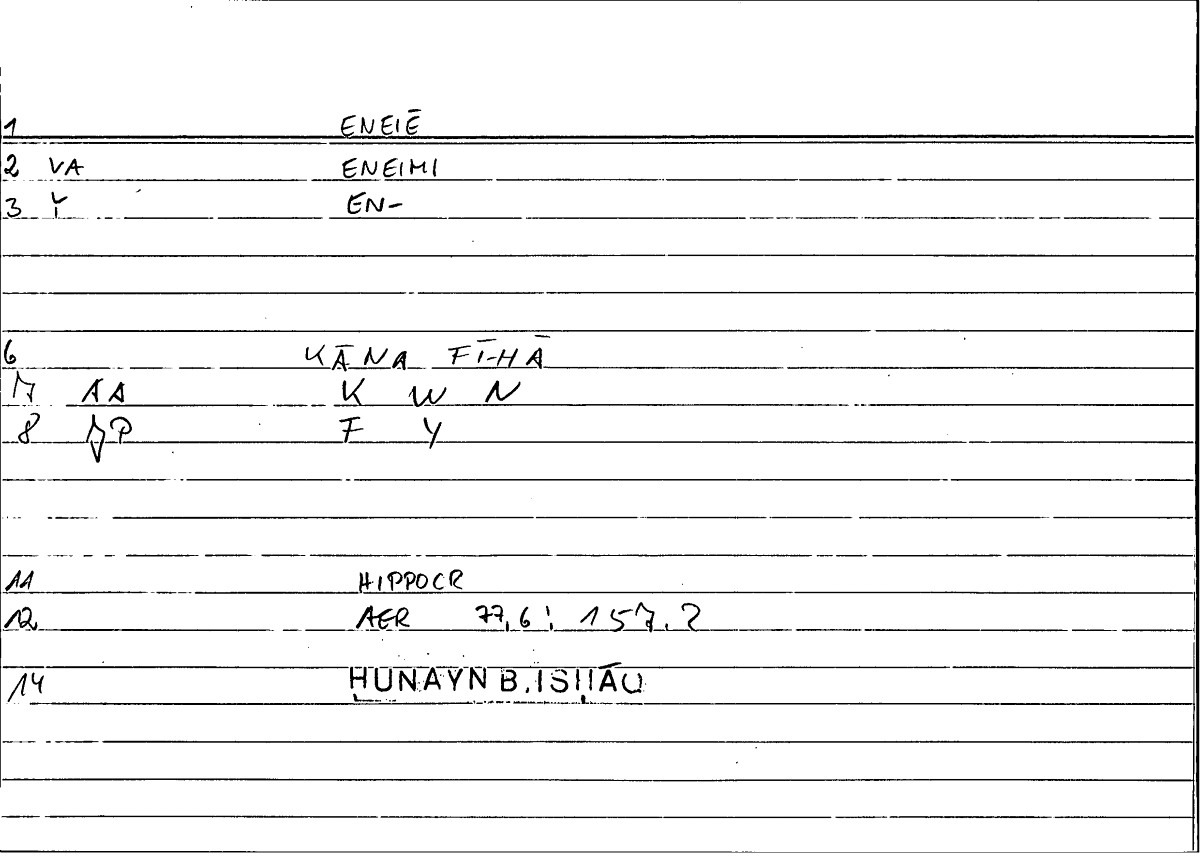 1 ENEIĒ
2 VA ENEIMI
3 Y EN-
6 KĀNA FĪ-HĀ
7 AA K W N
8 P F Y
11 HIPPOCR
12 AER 77,6 : 157.2
14 ḤUNAYN B. ISḤĀQ